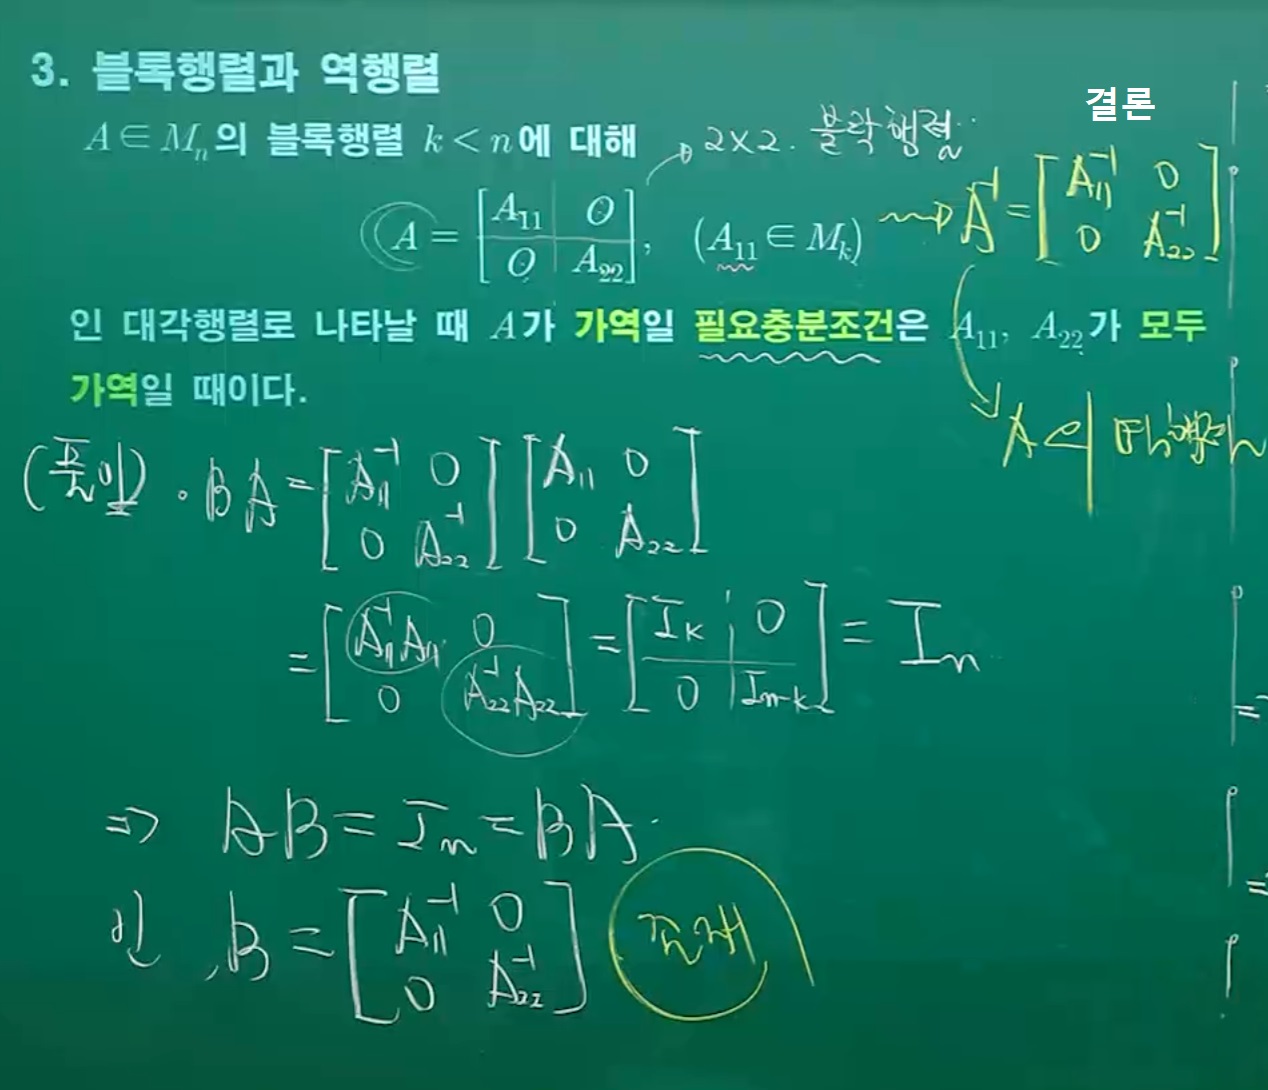 3. 블록행렬과 역행렬
결론
A ∈ Mₙ의 블록행렬 k < n에 대해
2×2. 블락행렬
A = [A₁₁ O; O A₂₂], (A₁₁ ∈ Mₖ)
A⁻¹ = [A₁₁⁻¹ 0; 0 A₂₂⁻¹]
인 대각행렬로 나타날 때 A가 가역일 필요충분조건은 A₁₁, A₂₂가 모두
가역일 때이다.
A의
(풀이) · BA = [A₁₁⁻¹ 0; 0 A₂₂⁻¹] [A₁₁ 0; 0 A₂₂]
= [A₁₁⁻¹A₁₁ 0; 0 A₂₂⁻¹A₂₂] = [Iₖ 0; 0 Iₙ₋ₖ] = Iₙ
⇒ AB = Iₙ = BA.
인 B = [A₁₁⁻¹ 0; 0 A₂₂⁻¹] 존재